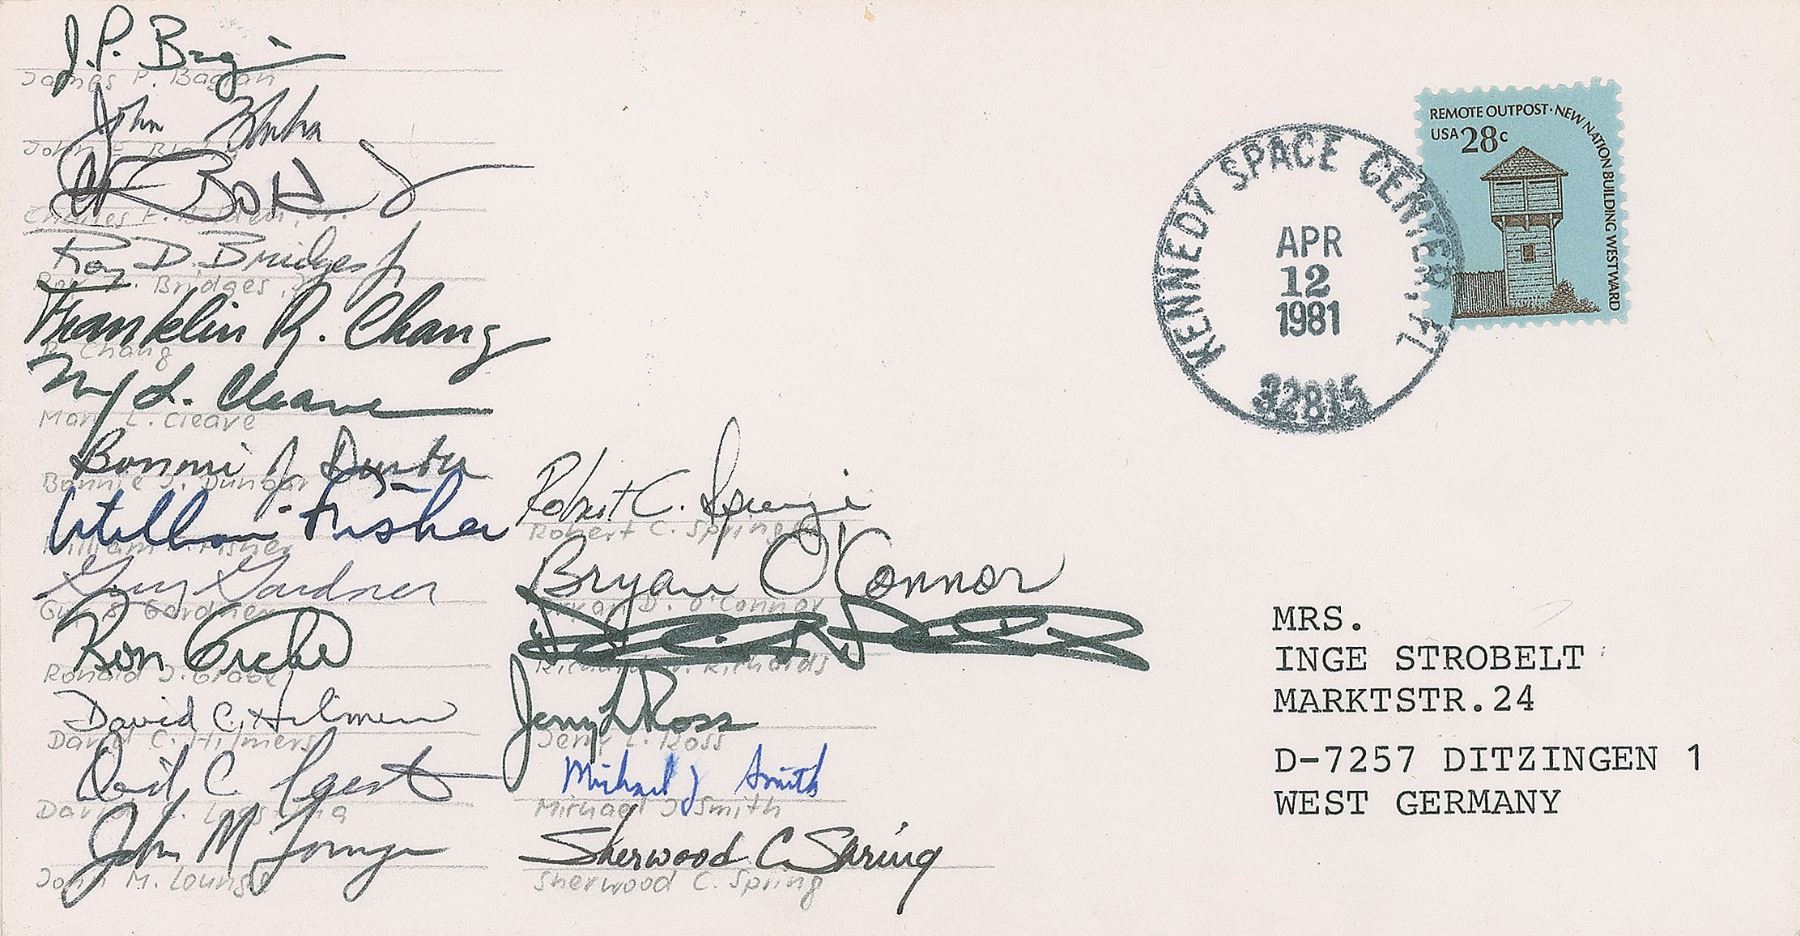 J.P. Bagian
James P. Bagian
John Blaha
John E. Blaha
Charles F. Bolden, Jr.
Roy D. Bridges Jr
Roy D. Bridges, Jr
Franklin R. Chang
R. Chang
Mary L. Cleave
Mary L. Cleave
Bonnie J Dunbar
Bonnie J. Dunbar
William Fisher
William F. Fisher
Guy Gardner
Guy S. Gardner
Ron Grabe
Ronald J. Grabe
David C. Hilmers
David C. Hilmers
David C Leestma
David C. Leestma
John M Lounge
John M. Lounge
Robert C. Springer
Robert C. Springer
Bryan O'Connor
Bryan D. O'Connor
Richard N. Richards
Jerry L Ross
Jerry L. Ross
Michael J Smith
Michael J. Smith
Sherwood C. Spring
Sherwood C. Spring
KENNEDY SPACE CENTER, FL
APR
12
1981
32815
REMOTE OUTPOST·NEW NATION BUILDING WESTWARD
USA 28c
MRS.
INGE STROBELT
MARKTSTR.24
D-7257 DITZINGEN 1
WEST GERMANY